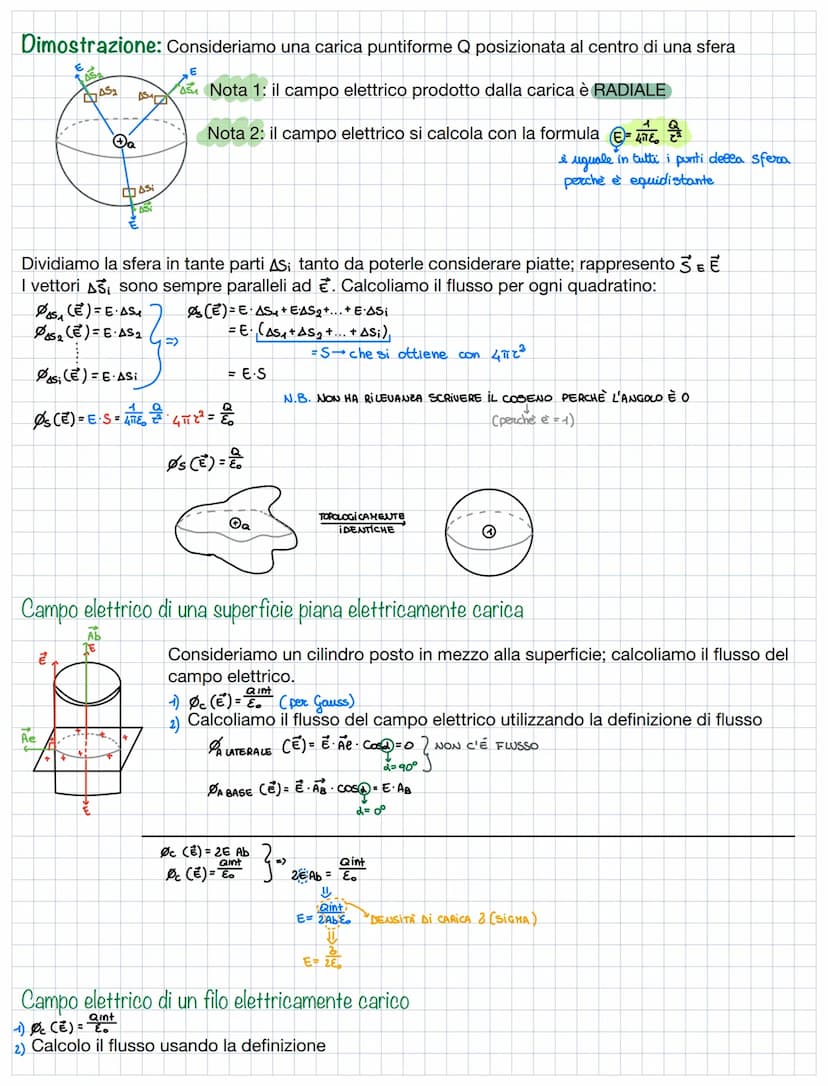 Dimostrazione: Consideriamo una carica puntiforme Q posizionata al centro di una sfera
E ΔS⃗₂ ΔS₂ ΔS₁ E ΔS⃗₁
Nota 1: il campo elettrico prodotto dalla carica è RADIALE
+Q
Nota 2: il campo elettrico si calcola con la formula E = 1/4πε₀ Q/r²
è uguale in tutti i punti della sfera
perché è equidistante
ΔSi
ΔS⃗i
E
Dividiamo la sfera in tante parti ΔSi tanto da poterle considerare piatte; rappresento S⃗ E E⃗
I vettori ΔS⃗i sono sempre paralleli ad E⃗. Calcoliamo il flusso per ogni quadratino:
ØΔS₁ (E⃗) = E·ΔS₁ Øs(E⃗) = E·ΔS₁ + EΔS₂ + ... + E·ΔSi
ØΔS₂ (E⃗) = E·ΔS₂ => = E·(ΔS₁ + ΔS₂ + ... + ΔSi)
= S → che si ottiene con 4πr²
ØΔSi (E⃗) = E·ΔSi = E·S
N.B. NON HA RILEVANZA SCRIVERE IL COSENO PERCHÈ L'ANGOLO È 0
Øs(E⃗) = E·S = 1/4πε₀ Q/r² · 4πr² = Q/ε₀ (perché è = 1)
Øs(E⃗) = Q/ε₀
+Q TOPOLOGICAMENTE
IDENTICHE
Campo elettrico di una superficie piana elettricamente carica
A⃗b
E
E⃗
Consideriamo un cilindro posto in mezzo alla superficie; calcoliamo il flusso del
campo elettrico.
1) Øc(E⃗) = Qint/ε₀ (per Gauss)
2) Calcoliamo il flusso del campo elettrico utilizzando la definizione di flusso
A⃗e
ØA LATERALE (E⃗) = E⃗·A⃗e·cosα = 0 } NON C'È FLUSSO
α = 90°
ØA BASE (E⃗) = E⃗·A⃗B·cosα = E·AB
α = 0°
E
Øc (E⃗) = 2E Ab
Øc (E⃗) = Qint/ε₀ } => 2E Ab = Qint/ε₀
⇓
E = Qint/2Abε₀ DENSITÀ DI CARICA δ (SIGMA)
⇓
E = δ/2ε₀
Campo elettrico di un filo elettricamente carico
1) Øc (E⃗) = Qint/ε₀
2) Calcolo il flusso usando la definizione